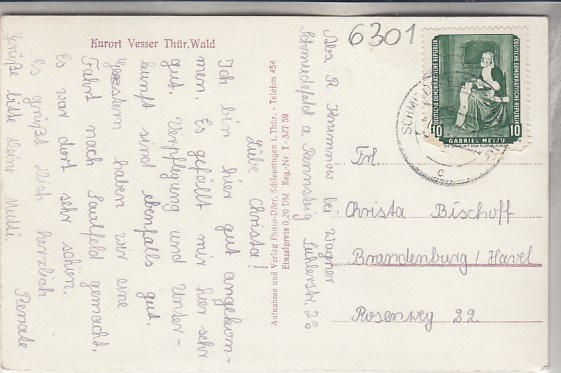 Kurort Vesser Thür. Wald
Liebe Christa!
Ich bin hier gut angekom-
men. Es gefällt mir hier sehr
gut. Verpflegung und Unter-
kunft sind ebenfalls gut.
Gestern haben wir eine
Fahrt nach Saalfeld gemacht.
Es war dort sehr schön.
Es grüßt Dich herzlich
Renate
Grüße bitte Deine Mutti.
Aufnahme und Verlag Photo-Dörr, Schleusingen i. Thür. - Telefon 454
Einzelpreis 0.20 DM Reg.-Nr. I - 327 59
Abs. R. bei Wagner
Schmiedefeld a Rennsteig Suhlerstr. 28
6301
DEUTSCHE DEMOKRATISCHE REPUBLIK
DEUTSCHE DEMOKRATISCHE REPUBLIK
10 10
GABRIEL METZU
SCHMI
c
Frl.
Christa Bischoff
Brandenburg / Havel
Rosenweg 22.